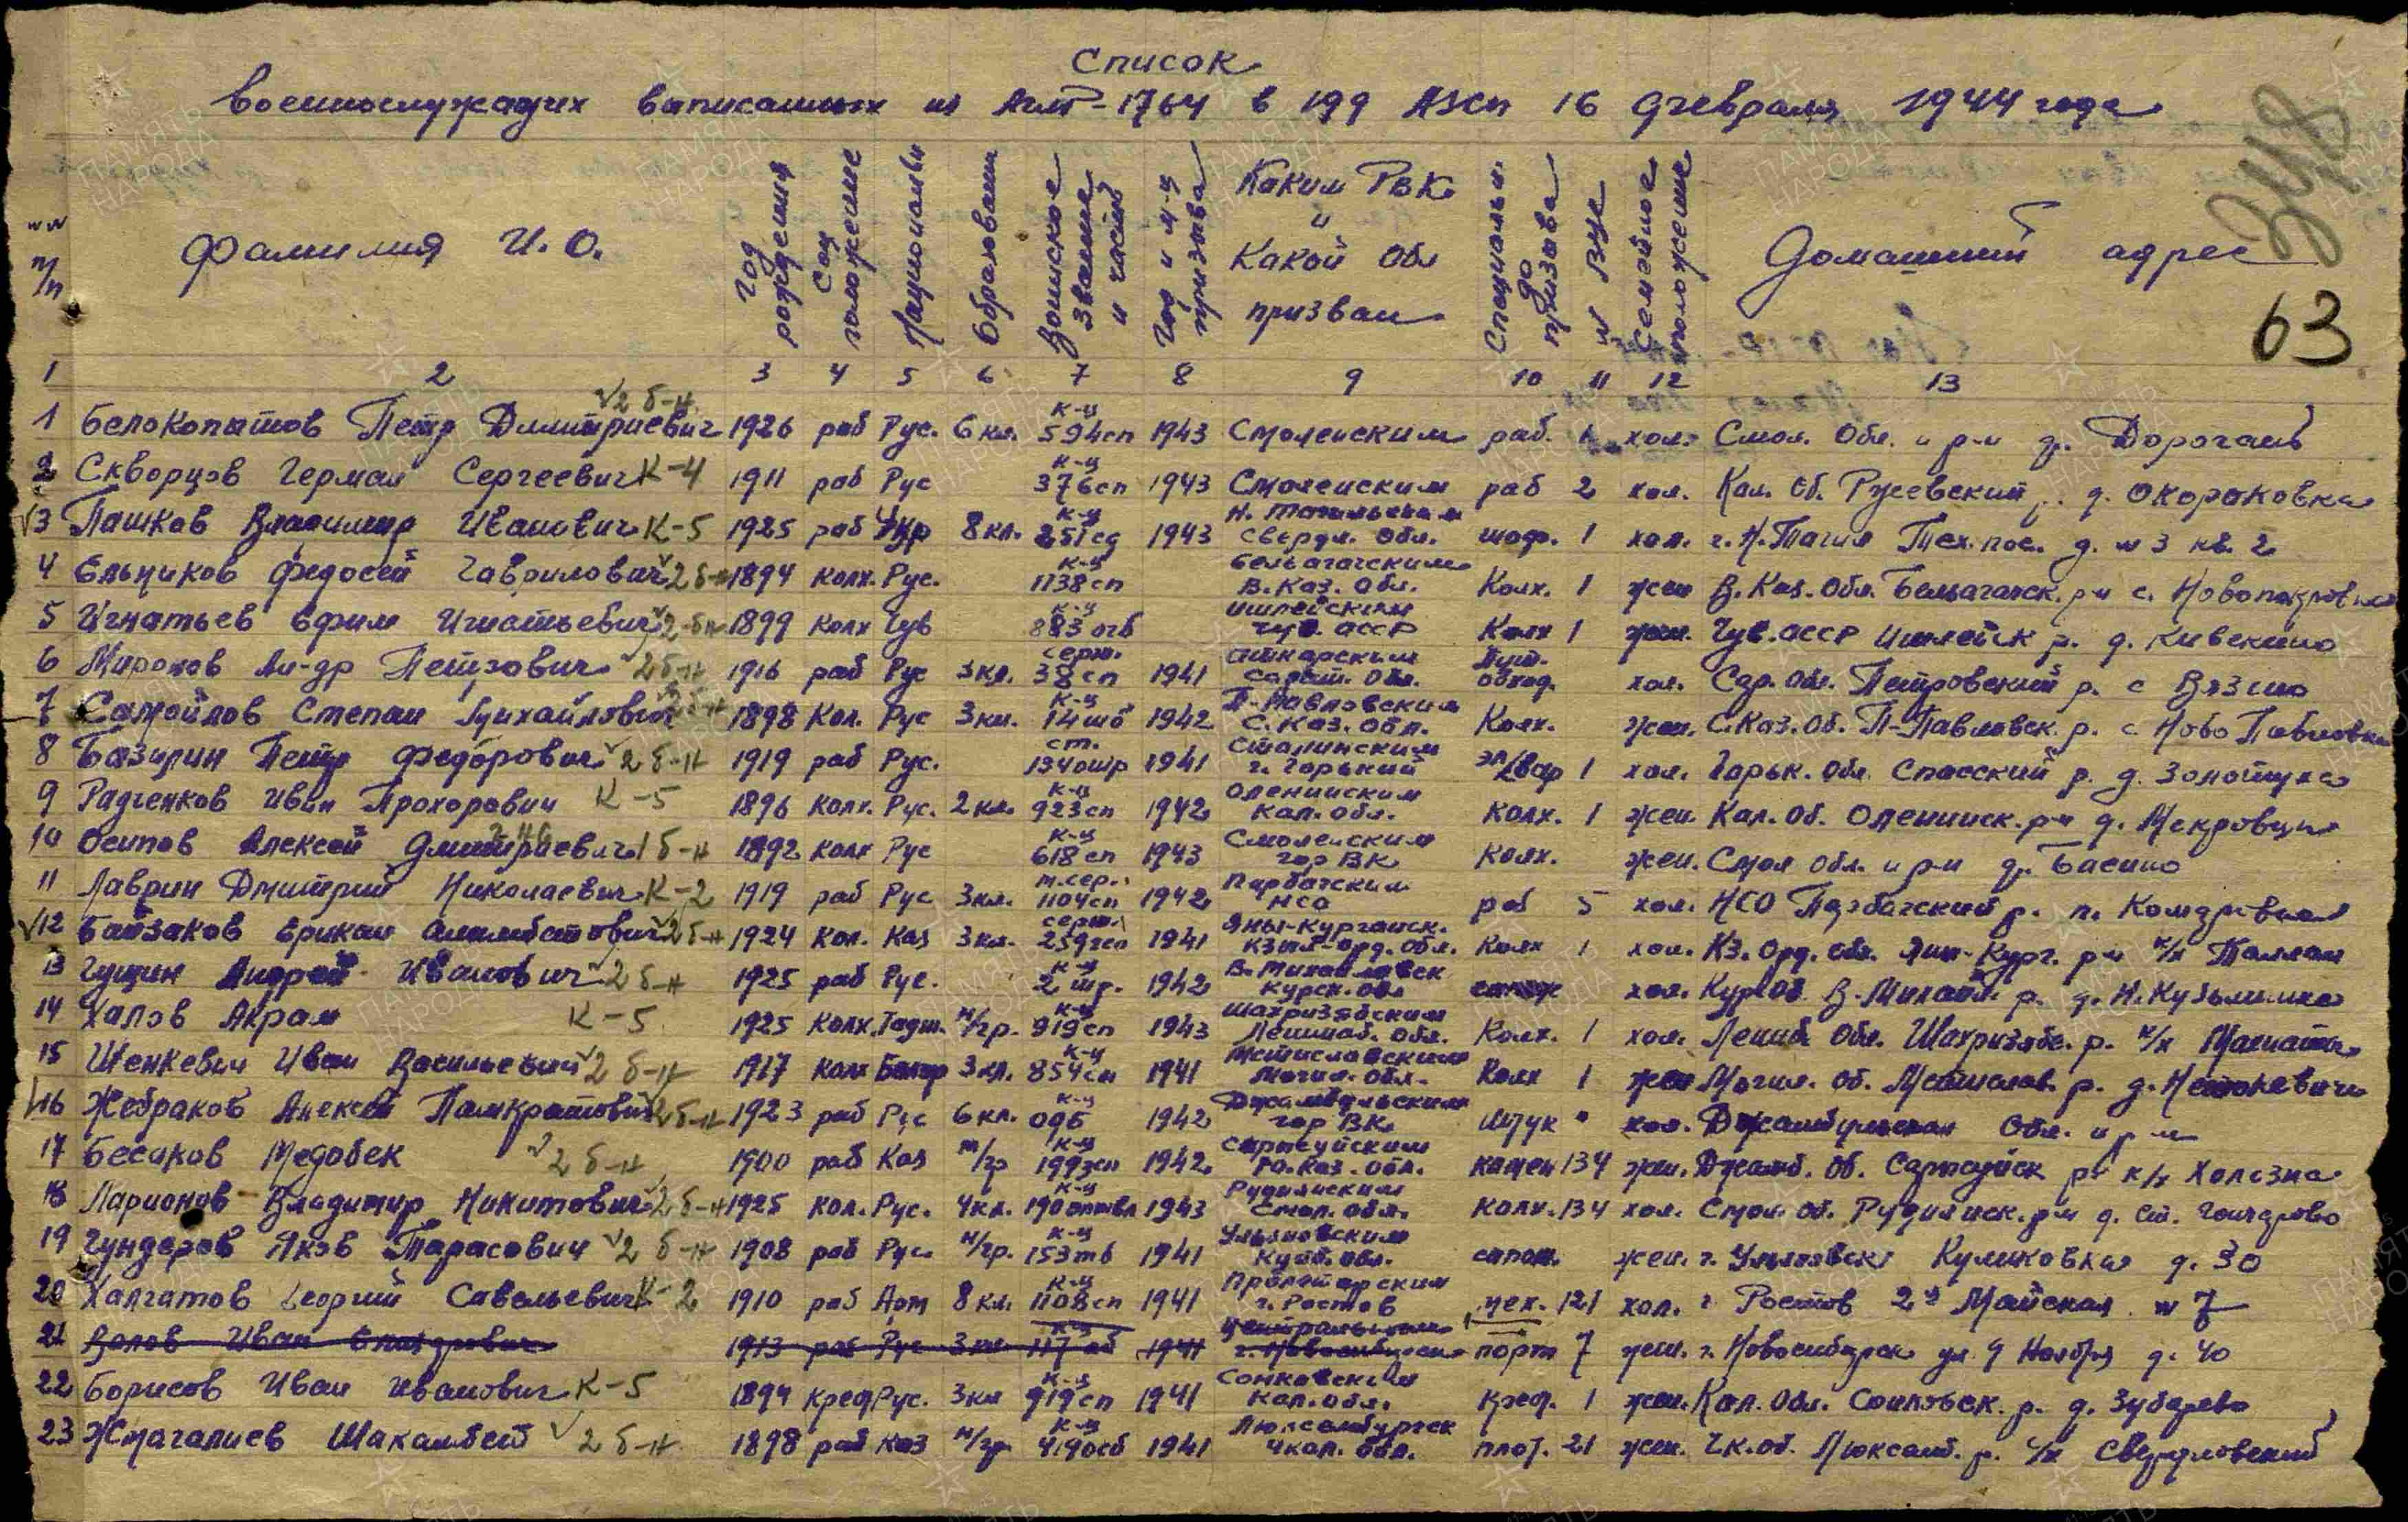 Список
военнослужащих выписанных из АГЛР-1764 в 199 АЗСП 16 февраля 1944 года
348
63
№№ п/п
Фамилия И. О.
Год рождения
Соц положение
Национальн
Образован
Воинское звание и часть
Год и м-ц призыва
Каким РВК и Какой Обл призван
Специальн. до призыва
№ ВУС
Семейное положение
Домашний адрес
1 2 3 4 5 6 7 8 9 10 11 12 13
1 Белокопытов Петр Дмитриевич √2 б-н 1926 раб Рус. 6 кл. к-ц 594сп 1943 Смоленским раб. 1 хол. Смол. Обл. и р-н д.
2 Скворцов Герман Сергеевич К-4 1911 раб Рус к-ц 376сп 1943 Смоленским раб 2 хол. Кал. Об. д. Окороковка
√3 Пашков Владимир Иванович К-5 1925 раб Укр 8 кл. к-ц 251сд 1943 Н. Тагильским Свердл. Обл. шоф. 1 хол. г. Н. Тагил Тех. пос. д. № 3 кв. 2
4 Ельчиков Федосей Гаврилович √2 б-н 1894 колх. Рус. к-ц 1138сп Бельагачским В. Каз. Обл. Колх. 1 жен В. Каз. Обл. Бельагачск. р-н с. Новопокровка
5 Игнатьев Ефим Игнатьевич √2 б-н 1899 колх Чув к-ц 883 огб Ишлейским Чув. АССР Колх 1 жен. Чув. АССР Ишлейск р. д. Кивекино
6 Миронов Ал-др Петрович √2 б-н 1916 раб Рус 3 кл. серж. 38сп 1941 Аткарским Сарат. Обл. Пут. обход. хол. Сар. Обл. Петровский р. с Вязьмо
7 Самойлов Степан Михайлович √2 б-н 1898 Кол. Рус 3 кл. к-ц 14шб 1942 П-Павловским С. Каз. Обл. Колх. жен. С. Каз. Об. П-Павловск. р. с Ново Павловка
8 Базирин Петр Федорович √2 б-н 1919 раб Рус. ст. 134 ошр 1941 Сталинским г. Горький эл/свар 1 хол. Горьк. Обл. Спасский р. д. Золотуха
9 Радченков Иван Прохорович К-5 1896 Колх. Рус. 2 кл. к-ц 923сп 1942 Оленинским Кал. Обл. Колх. 1 жен. Кал. Об. Оленинск. р-н д. Мекровцы
10 Осипов Алексей Дмитриевич 1 б-н 1892 колх Рус к-ц 618сп 1943 Смоленским гор ВК колх. жен. Смол Обл. и р-н д. Басино
11 Лаврин Дмитрий Николаевич К-2 1919 раб Рус 3 кл. м.сер. 1104сп 1942 Парбагским НСО раб 5 хол. НСО Парбагский р. п.
√12 Байзаков Ерикан √2 б-н 1924 кол. Каз 3 кл. серж. 259гсп 1941 Яны-Курганск. Кзыл-Орд. Обл. Колх 1 хол. Кз. Орд. Обл. Яны-Кург. р-н к/х Таллап
13 Гущин Андрей Иванович √2 б-н 1925 раб Рус. к-ц 2 шр. 1942 В. Михайловск Курск. Обл хол. Кур Об В-Михайл. р. д. Н. Кузьминка
14 Халов Акрам К-5 1925 Колх. Тадж. м/гр. к-ц 919сп 1943 Шахризябским Ленинаб. Обл. Колх. 1 хол. Ленинб. Обл. Шахризябс. р. к/х
15 Шенкевич Иван Васильевич √2 б-н 1917 колх Белор 3 кл. к-ц 854сп 1941 Мстиславским Могил. Обл. Колх 1 жен Могил. Об. Мстислав. р. д.
√16 Жебраков Алексей Панкратович √2 б-н 1923 раб Рус 6 кл. к-ц 096 1942 Джамбульским гор ВК Штук " хол. Джамбульская Обл. и р-н
17 Бесаков Медобек √2 б-н 1900 раб Каз м/гр к-ц 199зсп 1942 Сарысуйским Ю. Каз. Обл. камен 134 жен. Джамб. Об. Сарысуйск р-н к/х
18 Ларионов Владимир Никитович √2 б-н 1925 кол. Рус. 4 кл. к-ц 190 1943 Руднянским Смол. обл. колх. 134 хол. Смол. Об. Руднянск. р-н д. Ст. Гончарово
19 Гундоров Яков Тарасович √2 б-н 1908 раб Рус. м/гр. к-ц 153тб 1941 Ульяновским Куйб. Обл. сапож. жен. г. Ульяновск Куликовка д. 30
20 Халгатов Георгий Савельевич К-2 1910 раб Арм 8 кл. к-ц 1108сп 1941 Пролетарским г. Ростов мех. 121 хол. г Ростов 2я Майская № 7
21 Волов Иван 1913 раб Рус 3 кл к-ц 117 об 1941 Центральным г. Новосибирск порт 7 жен. г. Новосибирск ул. 9 Ноября д. 40
22 Борисов Иван Иванович К-5 1894 Кред Рус. 3 кл к-ц 919сп 1941 Сонковским Кал. обл. кред. 1 жен. Кал. Обл. Сонковск. р. д. Зубарево
23 Жмагалиев Шакамбет √2 б-н 1898 раб Каз м/гр. к-ц 4190сб 1941 Люксембургск Чкал. обл. плот. 21 жен. Чк. об. Люксемб. р. с/х Свердловский